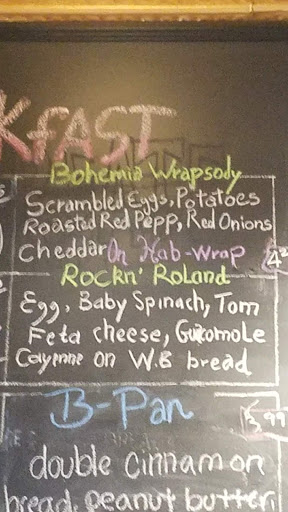 KFAST
Bohemia Wrapsody
Scrambled Eggs, Potatoes
Roasted Red Pepp, Red Onions
Cheddar On Hab-Wrap
Rockn' Roland
Egg, Baby Spinach, Tom
Feta cheese, Guacomole
Cayenne on W.B bread
B-Pan
3.99
double cinnamon
bread, peanut butter,